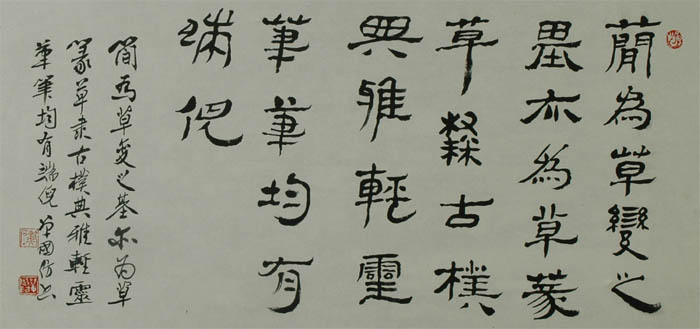 簡為草變之
基亦為草篆
草隸古樸
典雅輕靈
筆筆均有
端倪
简為草变之基亦为草
篆草隶古樸典雅輕靈
筆筆均有端倪 單國防书